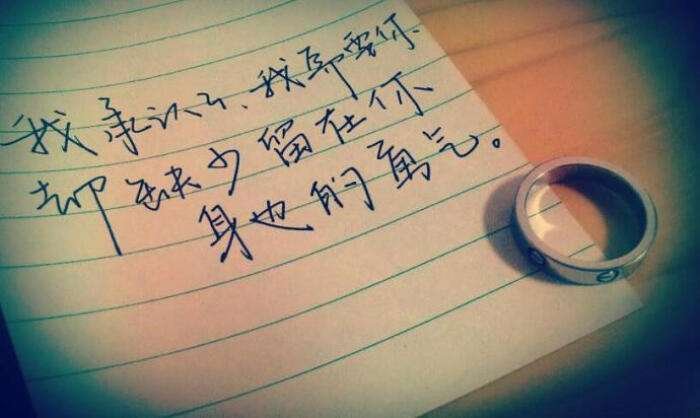 我承认了、我需要你
却缺少留在你
身边的勇气。